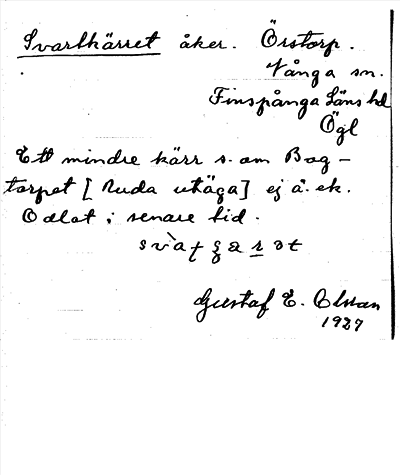 Svartkärret åker. Örstorp.
Vånga sn.
Finspånga Läns hd
Ögl
Ett mindre kärr s. om Bog-
torpet [Ruda utäga] ej å. ek.
Odlat i senare tid.
Gustaf E. Olsson
1927